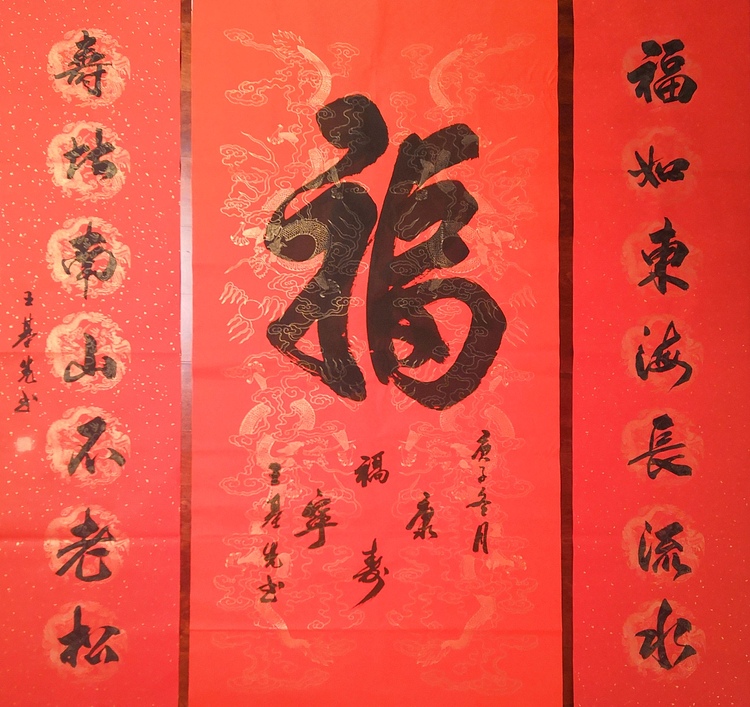 福如東海長流水
福
庚子冬月
福寿康寧
王基先书
寿比南山不老松
王基先书